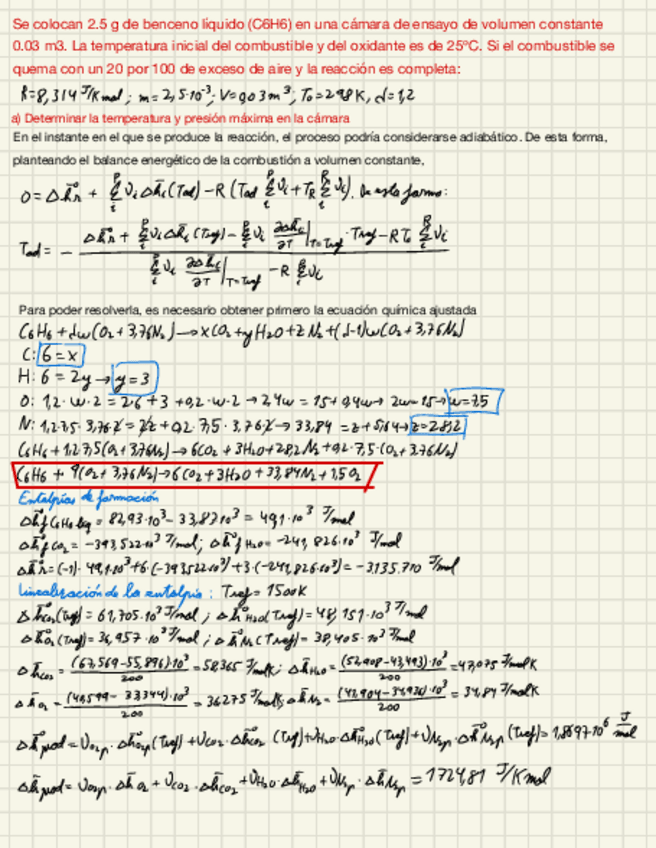 Se colocan 2.5 g de benceno líquido (C6H6) en una cámara de ensayo de volumen constante
0.03 m3. La temperatura inicial del combustible y del oxidante es de 25ºC. Si el combustible se
quema con un 20 por 100 de exceso de aire y la reacción es completa:
R=8,314 J/Kmol; m=2,5·10⁻³; V=0,03 m³; T₀=298K, d=1,2
a) Determinar la temperatura y presión máxima en la cámara
En el instante en el que se produce la reacción, el proceso podría considerarse adiabático. De esta forma,
planteando el balance energético de la combustión a volumen constante,
0 = Δh̄°r + Σᵢᴾ νᵢ Δh̄ᵢ(Tad) - R (Tad Σᵢᴾ νᵢ + T_R Σᵢᴿ νᵢ). De esta forma:
Tad = - (Δh̄°r + Σᵢᴾ νᵢ Δh̄ᵢ(Tref) - Σᵢᴾ νᵢ ∂Δh̄ᵢ/∂T |T=Tref · Tref - R T₀ Σᵢᴿ νᵢ) / (Σᵢᴾ νᵢ ∂Δh̄ᵢ/∂T |T=Tref - R Σᵢᴾ νᵢ)
Para poder resolverla, es necesario obtener primero la ecuación química ajustada
C6H6 + dw(O₂ + 3,76N₂) → xCO₂ + yH2O + zN₂ + (d-1)w(O₂ + 3,76N₂)
C: 6 = x
H: 6 = 2y → y = 3
O: 1,2·w·2 = 2·6 + 3 + 0,2·w·2 → 2,4w = 15 + 0,4w → 2w = 15 → w = 7,5
N: 1,2·7,5·3,76·2 = 2z + 0,2·7,5·3,76·2 → 33,84 = z + 5,64 → z = 28,2
C6H6 + 1,2·7,5(O₂ + 3,76N₂) → 6CO₂ + 3H2O + 28,2N₂ + 0,2·7,5·(O₂ + 3,76N₂)
C6H6 + 9(O₂ + 3,76N₂) → 6CO₂ + 3H2O + 33,84N₂ + 1,5O₂
Entalpías de formación
Δh̄°f C6H6 liq = 82,93·10³ - 33,83·10³ = 49,1·10³ J/mol
Δh̄°f CO₂ = -393,522·10³ J/mol; Δh̄°f H2O = -241,826·10³ J/mol
Δh̄°r = (-1)·49,1·10³ + 6·(-393,522·10³) + 3·(-241,826·10³) = -3.135.710 J/mol
Linealización de la entalpía: Tref = 1500K
Δh̄CO₂(Tref) = 61,705·10³ J/mol; Δh̄H2O(Tref) = 48,151·10³ J/mol
Δh̄O₂(Tref) = 36,957·10³ J/mol; Δh̄N₂(Tref) = 38,405·10³ J/mol
Δh̄CO₂ = (67,569-55,896)·10³/200 = 58,365 J/molK; Δh̄H2O = (52,908-43,493)·10³/200 = 47,075 J/molK
Δh̄O₂ = (40,599-33,344)·10³/200 = 36,275 J/molK; Δh̄N₂ = (42,904-34,936)·10³/200 = 39,84 J/molK
Δh̄°prod = νO₂p·Δh̄°O₂p(Tref) + νCO₂·Δh̄°CO₂(Tref) + νH₂O·Δh̄°H₂O(Tref) + νN₂p·Δh̄°N₂p(Tref) = 1,8697·10⁶ J/mol
Δh̄prod = νO₂p·Δh̄O₂ + νCO₂·Δh̄CO₂ + νH₂O·Δh̄H₂O + νN₂p·Δh̄N₂p = 1724,81 J/Kmol